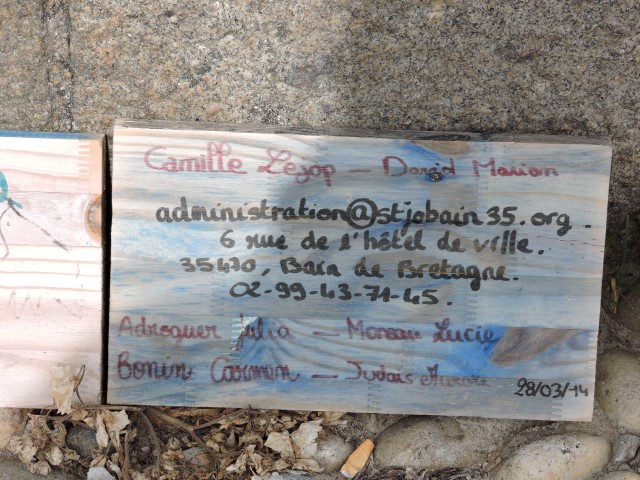 Camille Lejop - David Marion
administration@stjobain35.org.
6 rue de l'hôtel de ville.
35470, Bain de Bretagne.
02-99-43-71-45.
Adroguer Julia - Moreau Lucie
Bonin Carmen -
28/03/14